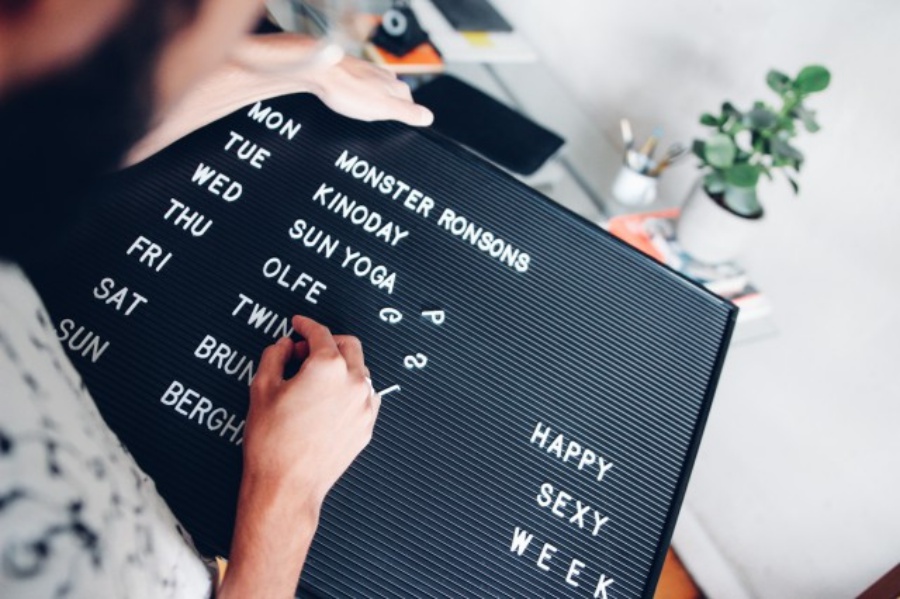 MON MONSTER RONSONS
TUE KINODAY
WED SUN YOGA
THU OLFE
FRI TWIN
SAT BRUN
SUN BERGHA
P
G
S
HAPPY
SEXY
WEEK